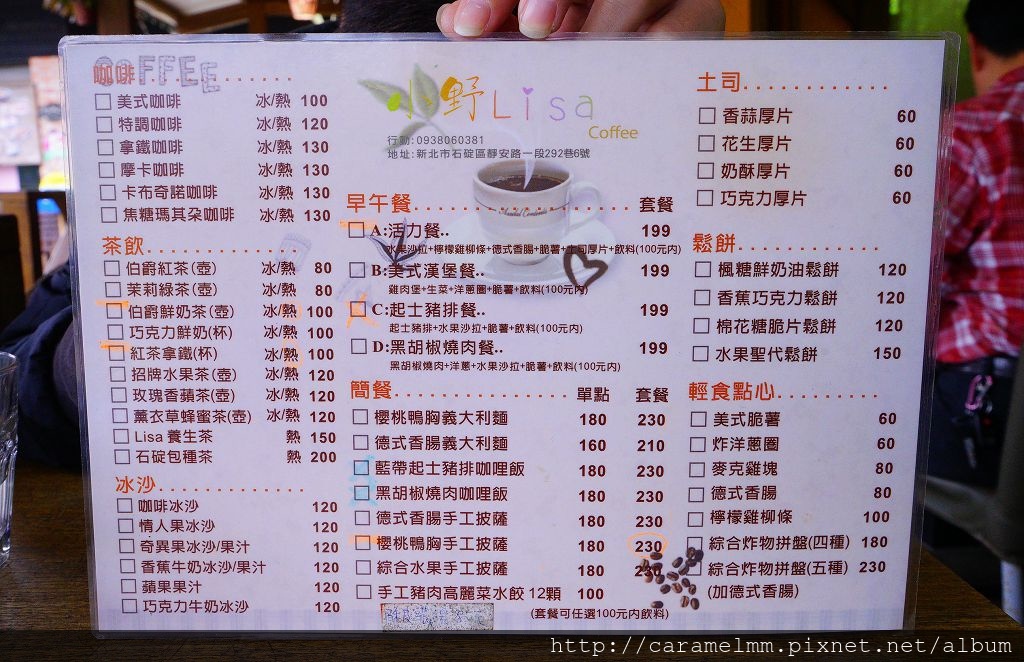 咖啡............
COFFEE
美式咖啡 冰/熱 100
特調咖啡 冰/熱 120
拿鐵咖啡 冰/熱 130
摩卡咖啡 冰/熱 130
卡布奇諾咖啡 冰/熱 130
焦糖瑪其朵咖啡 冰/熱 130
茶飲............
伯爵紅茶(壺) 冰/熱 80
茉莉綠茶(壺) 冰/熱 80
伯爵鮮奶茶(壺) 冰/熱 100
巧克力鮮奶(杯) 冰/熱 100
紅茶拿鐵(杯) 冰/熱 100
招牌水果茶(壺) 冰/熱 120
玫瑰香蘋茶(壺) 冰/熱 120
薰衣草蜂蜜茶(壺) 冰/熱 120
Lisa 養生茶 熱 150
石碇包種茶 熱 200
冰沙............
咖啡冰沙 120
情人果冰沙 120
奇異果冰沙/果汁 120
香蕉牛奶冰沙/果汁 120
蘋果果汁 120
巧克力牛奶冰沙 120
小野Lisa
Coffee
行動:0938060381
地址:新北市石碇區靜安路一段292巷6號
早午餐................套餐
A:活力餐.. 199
水果沙拉+檸檬雞柳條+德式香腸+脆薯+土司厚片+飲料(100元內)
B:美式漢堡餐.. 199
雞肉堡+生菜+洋蔥圈+脆薯+飲料(100元內)
C:起士豬排餐.. 199
起士豬排+水果沙拉+脆薯+飲料(100元內)
D:黑胡椒燒肉餐.. 199
黑胡椒燒肉+洋蔥+水果沙拉+脆薯+飲料(100元內)
簡餐............... 單點 套餐
櫻桃鴨胸義大利麵 180 230
德式香腸義大利麵 160 210
藍帶起士豬排咖哩飯 180 230
黑胡椒燒肉咖哩飯 180 230
德式香腸手工披薩 180 230
櫻桃鴨胸手工披薩 180 230
綜合水果手工披薩 180 230
手工豬肉高麗菜水餃 12顆 100
(套餐可任選100元內飲料)
土司............
香蒜厚片 60
花生厚片 60
奶酥厚片 60
巧克力厚片 60
鬆餅............
楓糖鮮奶油鬆餅 120
香蕉巧克力鬆餅 120
棉花糖脆片鬆餅 120
水果聖代鬆餅 150
輕食點心.........
美式脆薯 60
炸洋蔥圈 60
麥克雞塊 80
德式香腸 80
檸檬雞柳條 100
綜合炸物拼盤(四種) 180
綜合炸物拼盤(五種) 230
(加德式香腸)
http://caramelmm.pixnet.net/album